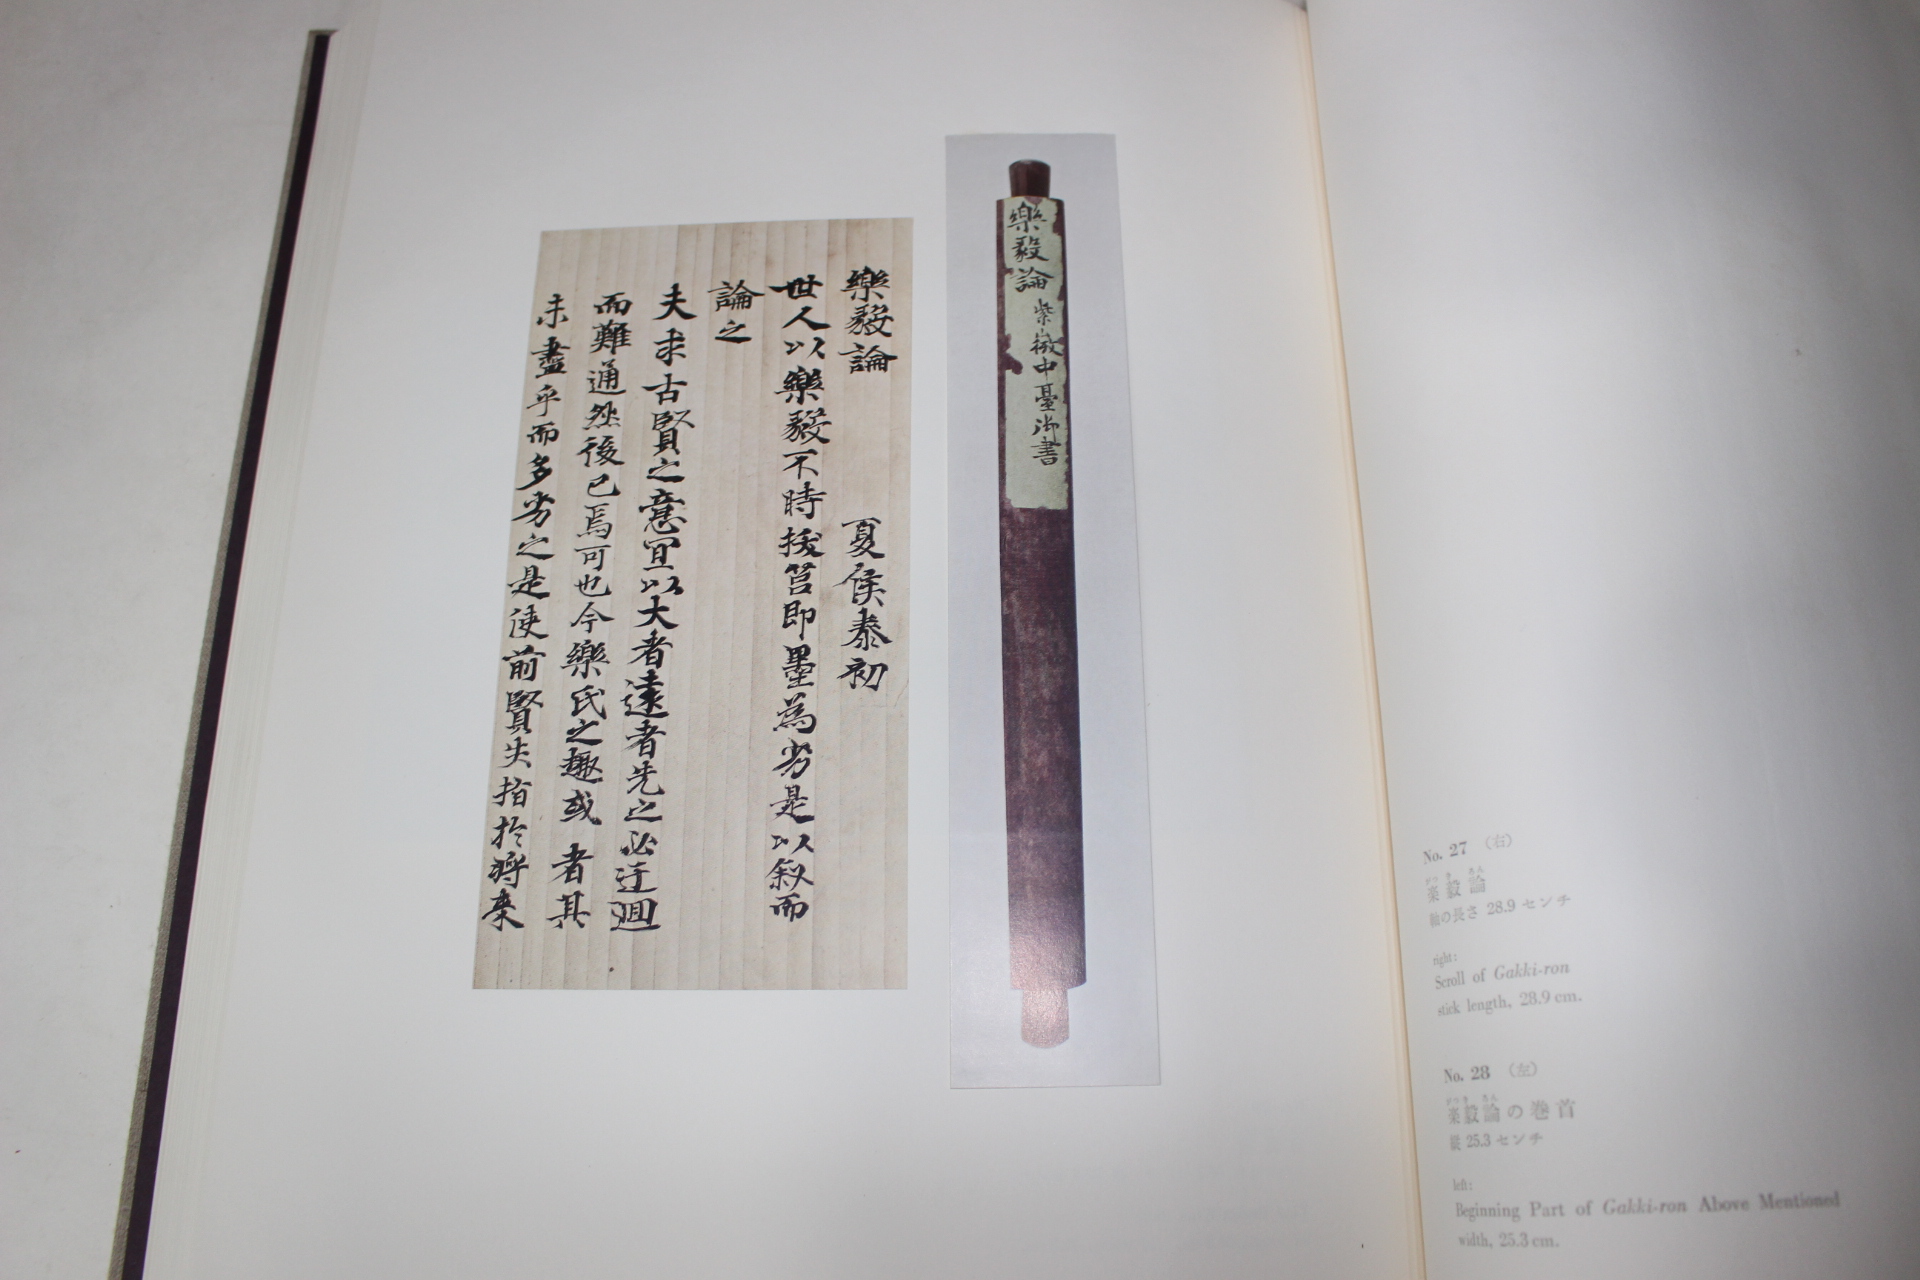 樂毅論
紫微中臺御書
樂毅論 夏侯泰初
世人以樂毅不時拔莒即墨為劣是以叙而
論之
夫求古賢之意宜以大者遠者先之必迂迴
而難通然後已焉可也今樂氏之趣或者其
未盡乎而多劣之是使前賢失指於將來
No. 27 (右)
がっ き ろん
楽毅論
軸の長さ 28.9 センチ
right:
Scroll of Gakki-ron
stick length, 28.9 cm.
No. 28 (左)
がっ き ろん
楽毅論の巻首
縦 25.3 センチ
left:
Beginning Part of Gakki-ron Above Mentioned
width, 25.3 cm.